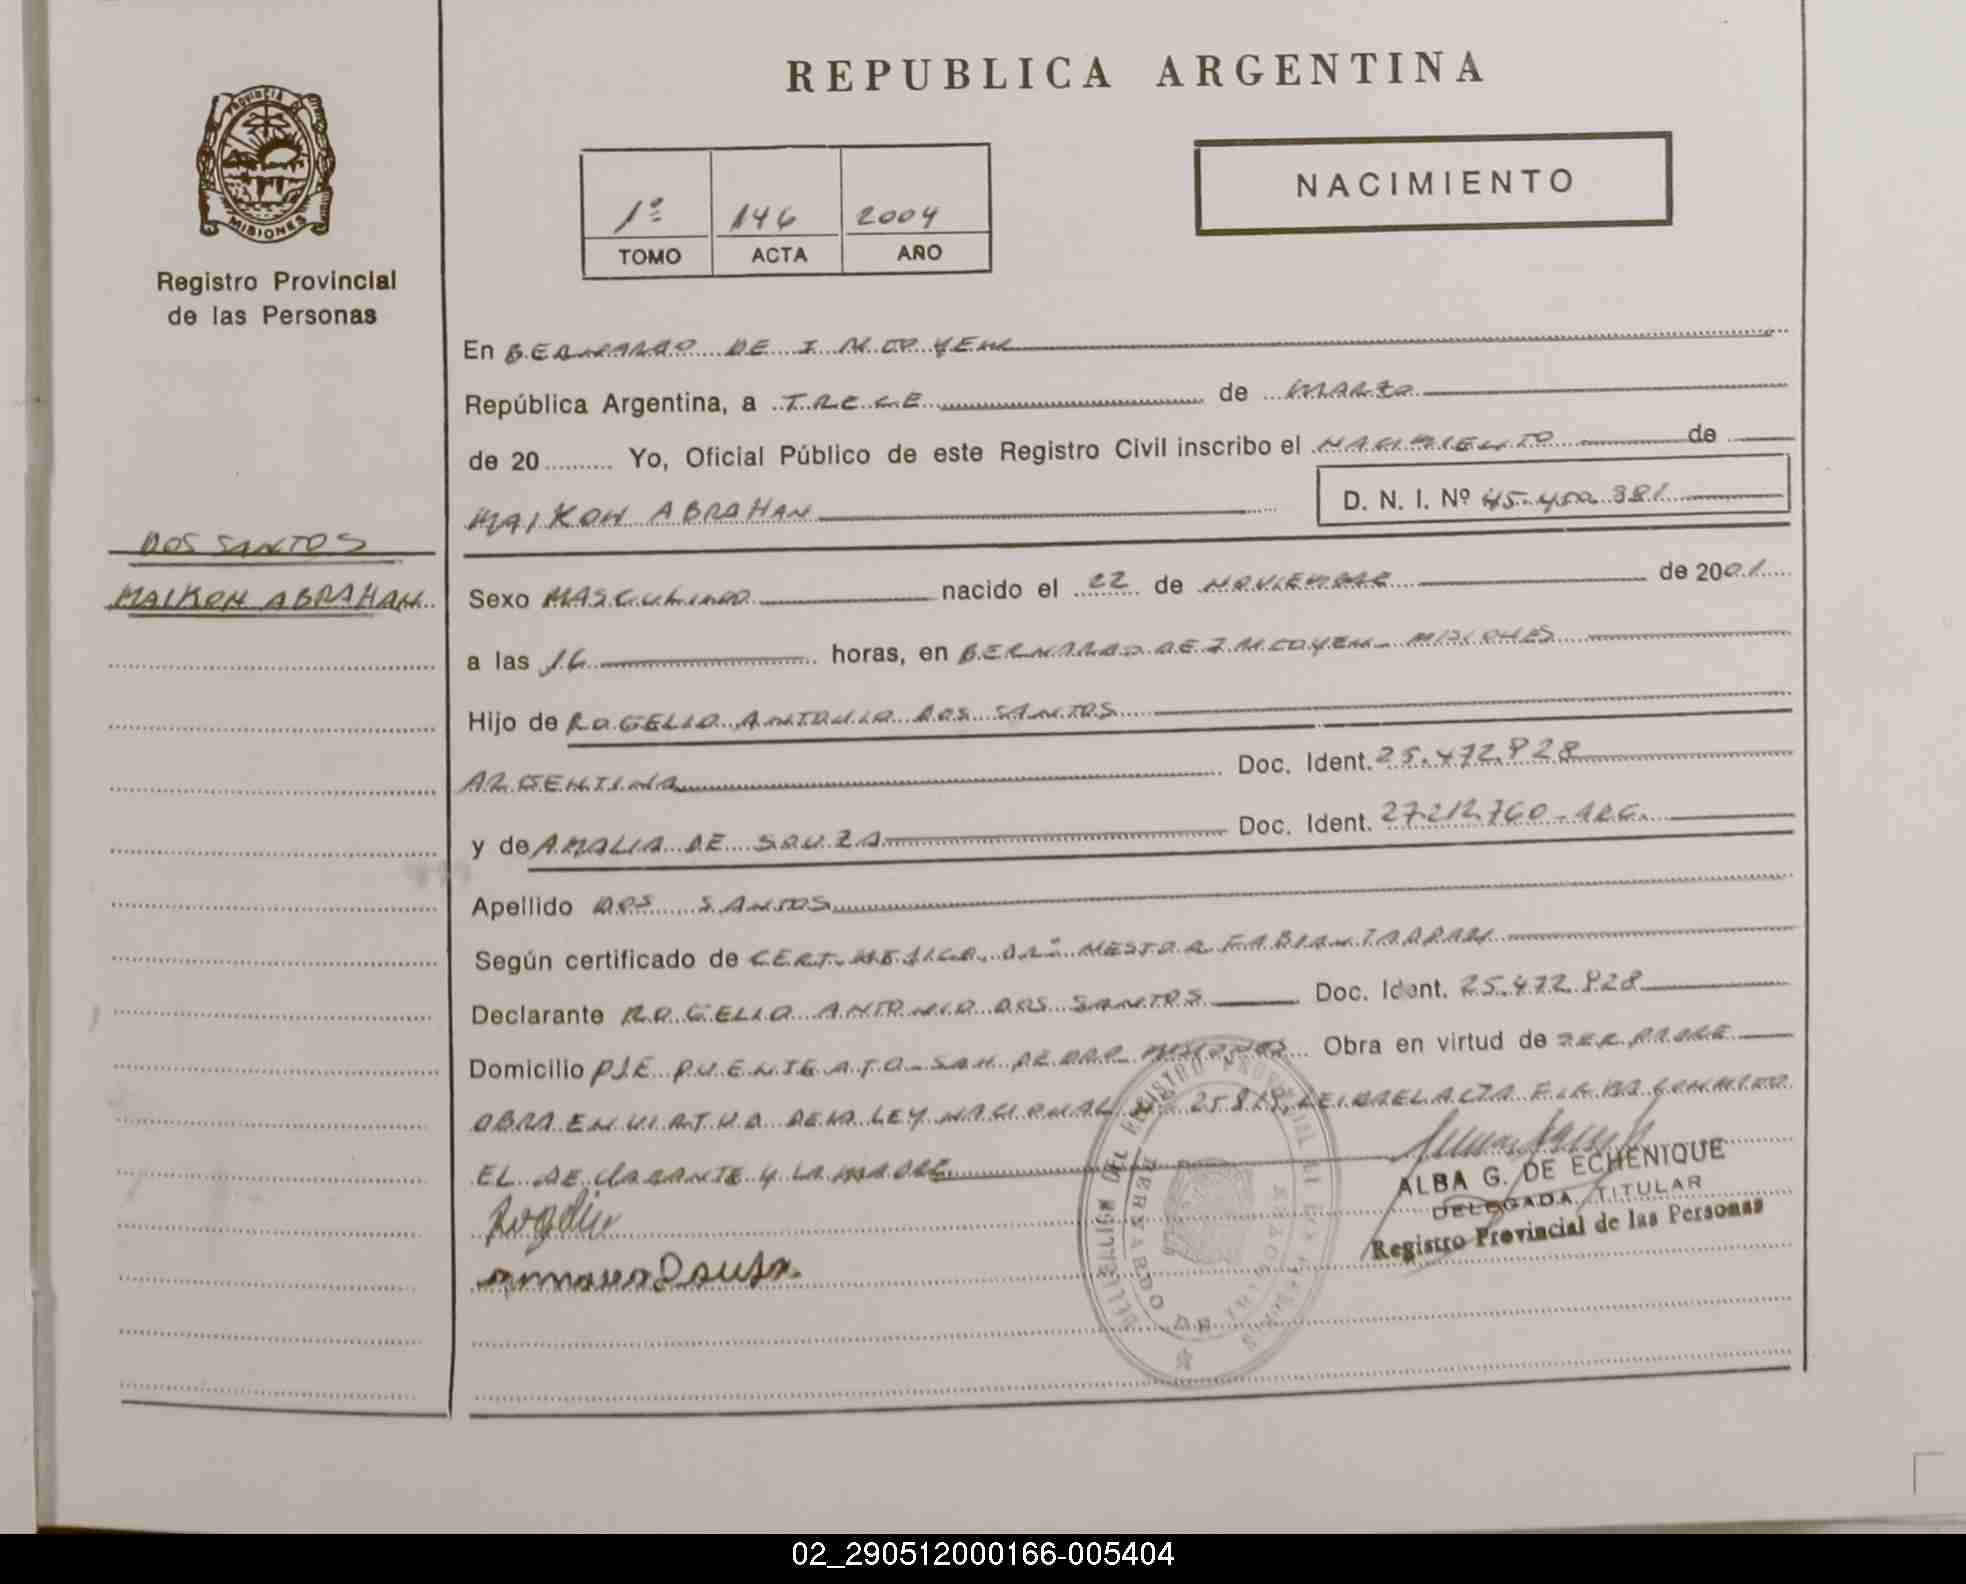 REPUBLICA ARGENTINA
PROVINCIA DE
MISIONES
Registro Provincial
de las Personas
1º 146 2004
TOMO ACTA AÑO
NACIMIENTO
En BERNARDO DE IRIGOYEN
República Argentina, a TRECE de MARZO
de 20 Yo, Oficial Público de este Registro Civil inscribo el NACIMIENTO de
MAIKON ABRAHAN D. N. I. Nº 45.450.381
DOS SANTOS
MAIKON ABRAHAN
Sexo MASCULINO nacido el 22 de NOVIEMBRE de 2001
a las 16 horas, en BERNARDO DE IRIGOYEN - MISIONES
Hijo de ROGELIO ANTONIO DOS SANTOS
ARGENTINA Doc. Ident. 25.472.828
y de AMALIA DE SOUZA Doc. Ident. 27.212.760 - ARG.
Apellido DOS SANTOS
Según certificado de CERT. MEDICO. DR. NESTOR FABIAN
Declarante ROGELIO ANTONIO DOS SANTOS Doc. Ident. 25.472.828
Domicilio PJE PUENTE ALTO - SAN PEDRO - MISIONES Obra en virtud de SER PADRE
OBRA EN VIRTUD DE LA LEY NACIONAL Nº 25819, LEIDA EL ACTA FIRMA CONMIGO
EL DECLARANTE Y LA MADRE
Rogelio
ALBA G. DE ECHENIQUE
DELEGADA TITULAR
Registro Provincial de las Personas
02_290512000166-005404